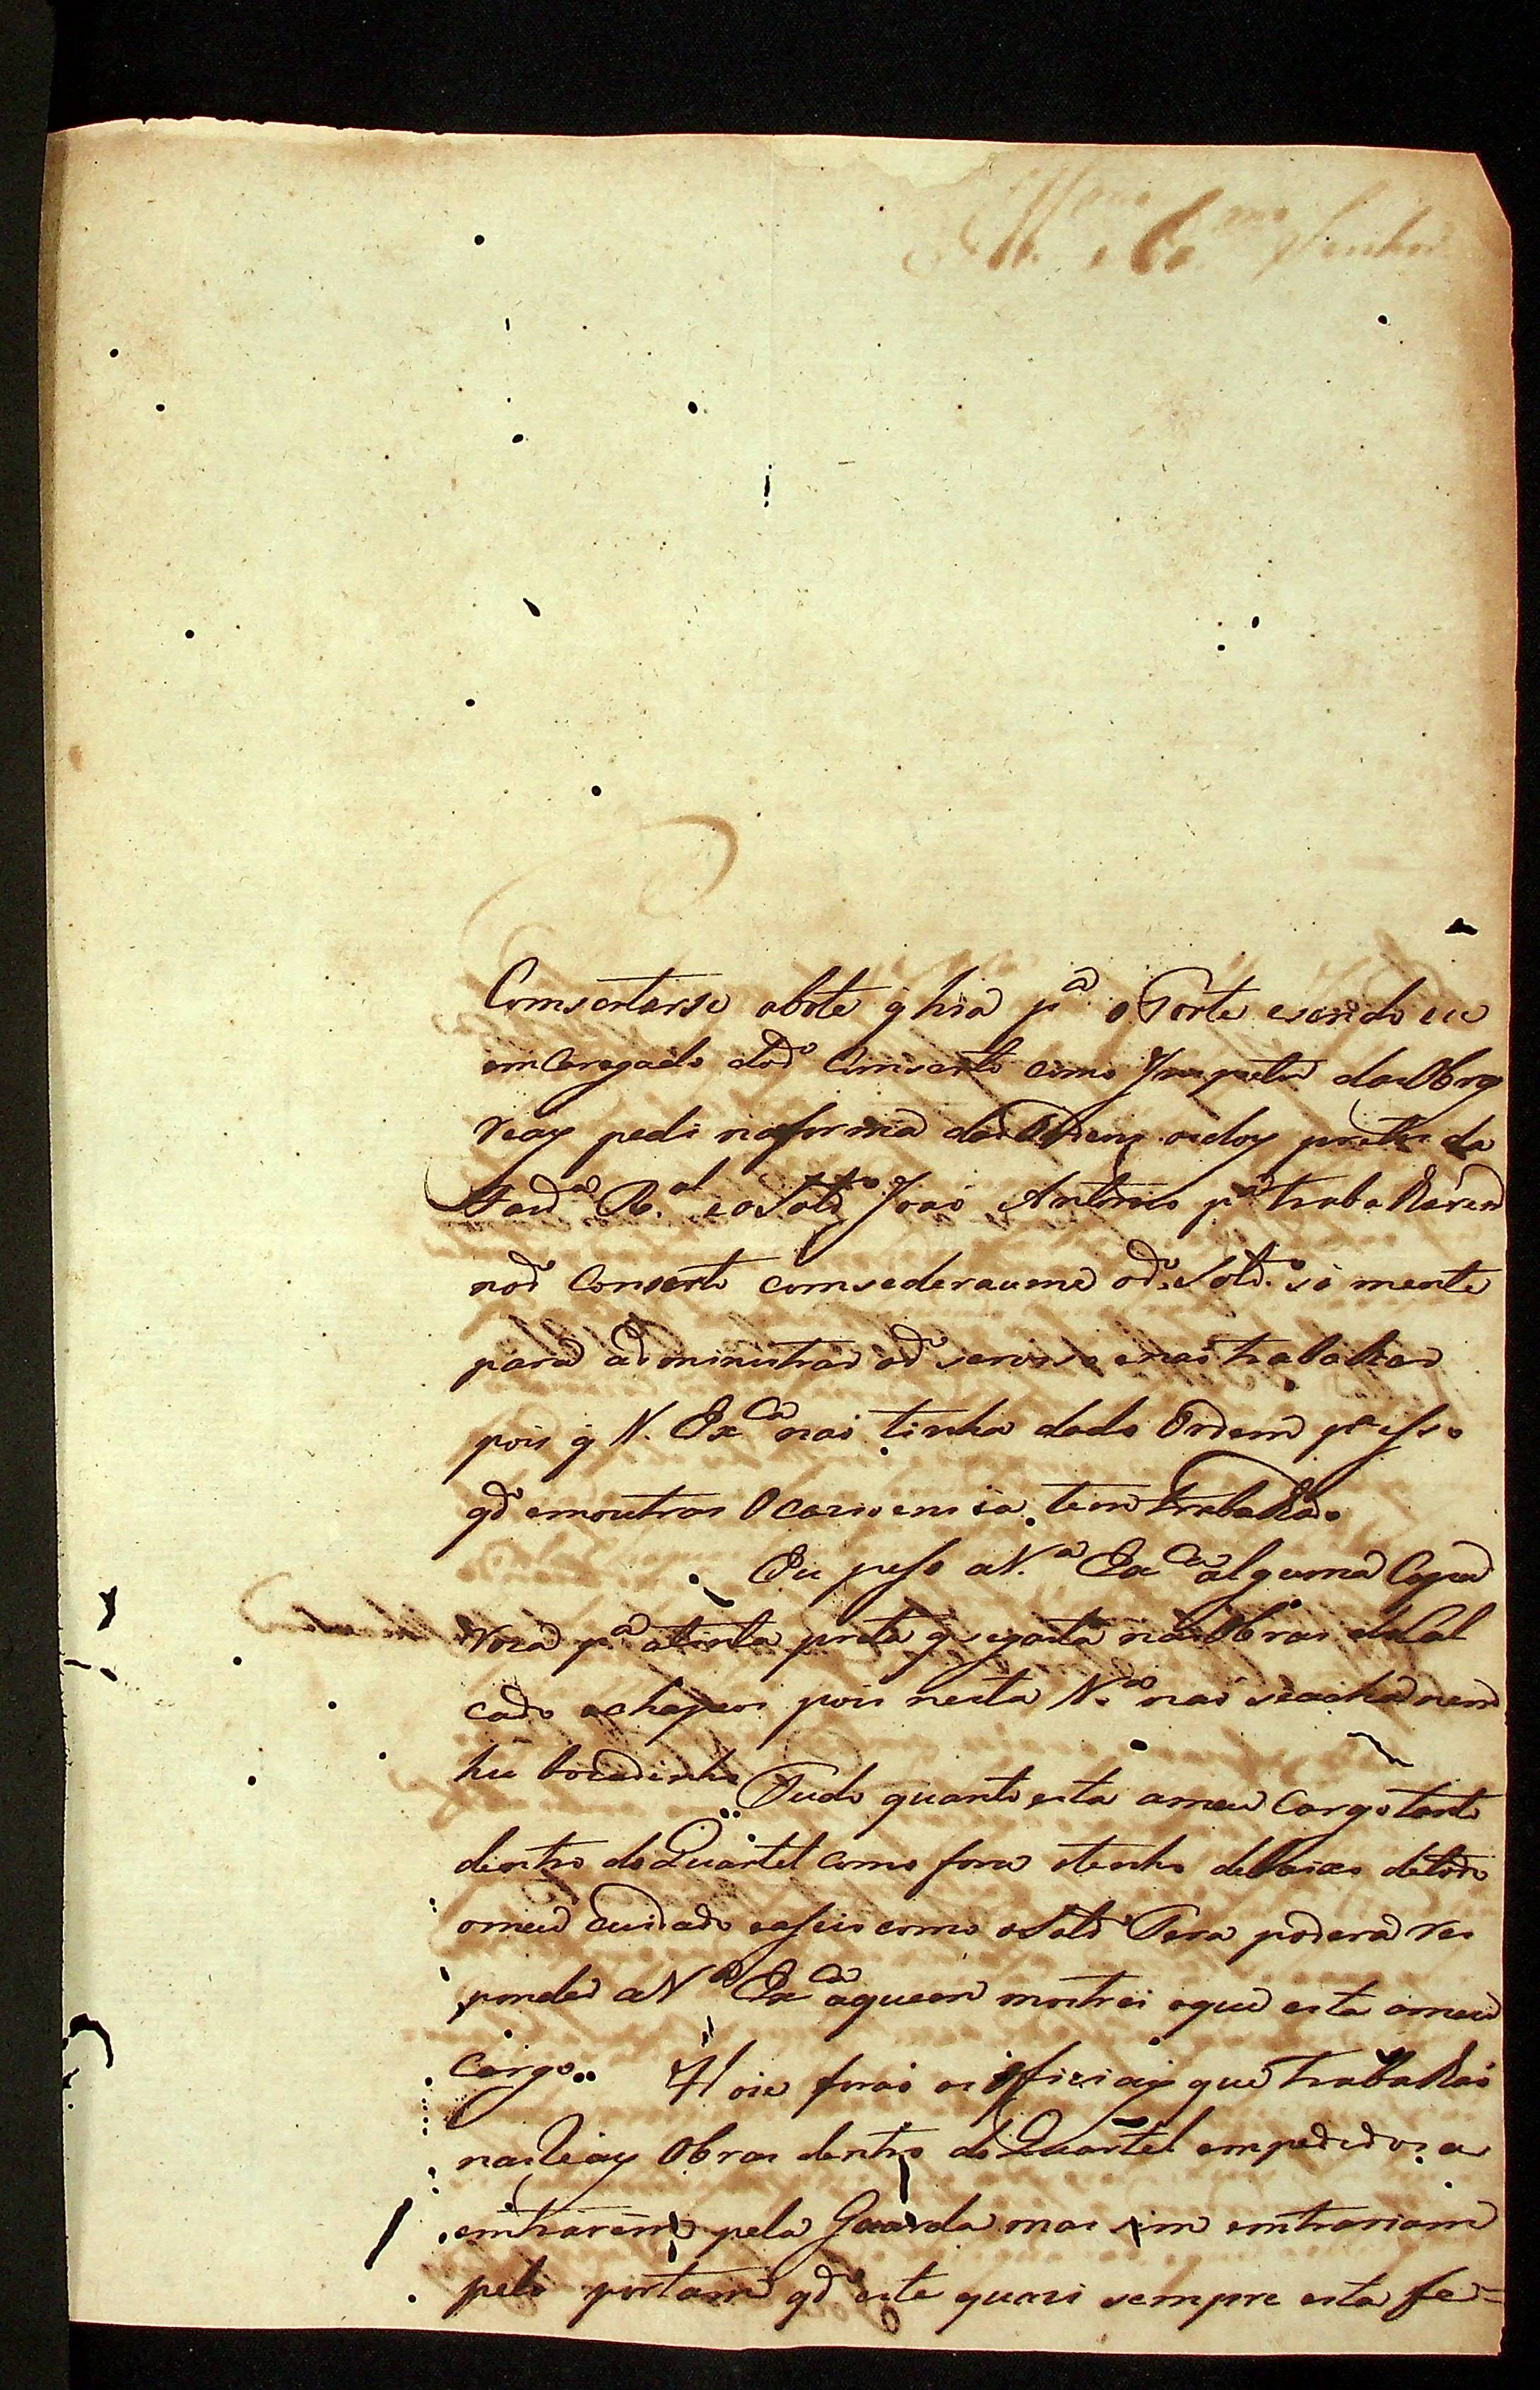 Ill.mo e Ex.mo Senhor
Comsertarse obote q̃ hia p.a o Forte esendo eu
emCaregado dod.o Comserto como Inspetor dasObras
Reays pedi naforma dasOrdens osdoys pretos da
Fazd.a R.al eoSold.o João Antonio p.a trabalharem
nod.o Conserto comsederaume od.o Sold.o só mente
para adeministrar od.o servisso enaõ trabalhar
pois q̃ V. Ex.Ca naõ tinha dado Ordem p.a isso
qd.o emoutras Ocazioens ia tem trabalhado
Eu pesso aV.a Ex.Ca alguma Capa
Roza p.a atinta preta q̃ segasta nasObras deCal
cado echapeos pois nesta V.a naõ seacha nem
hũ bocadinho Tudo quanto esta ameu Cargo tanto
dentro doQuartel como fora otenho debaixo detodo
omeu Cuidado easeio como oSold.o Pera poderá res
ponder aV.a Ex.Ca aquem mostrei oque esta ameu
Cargo.. Hoie foraõ os ofisiays que trabalhaõ
nasReays Obras dentro doQuartel empedidos a
emtrarem pela Guarda mas sim emtrariam
pelo portam qd.o este quazi sempre esta fe=